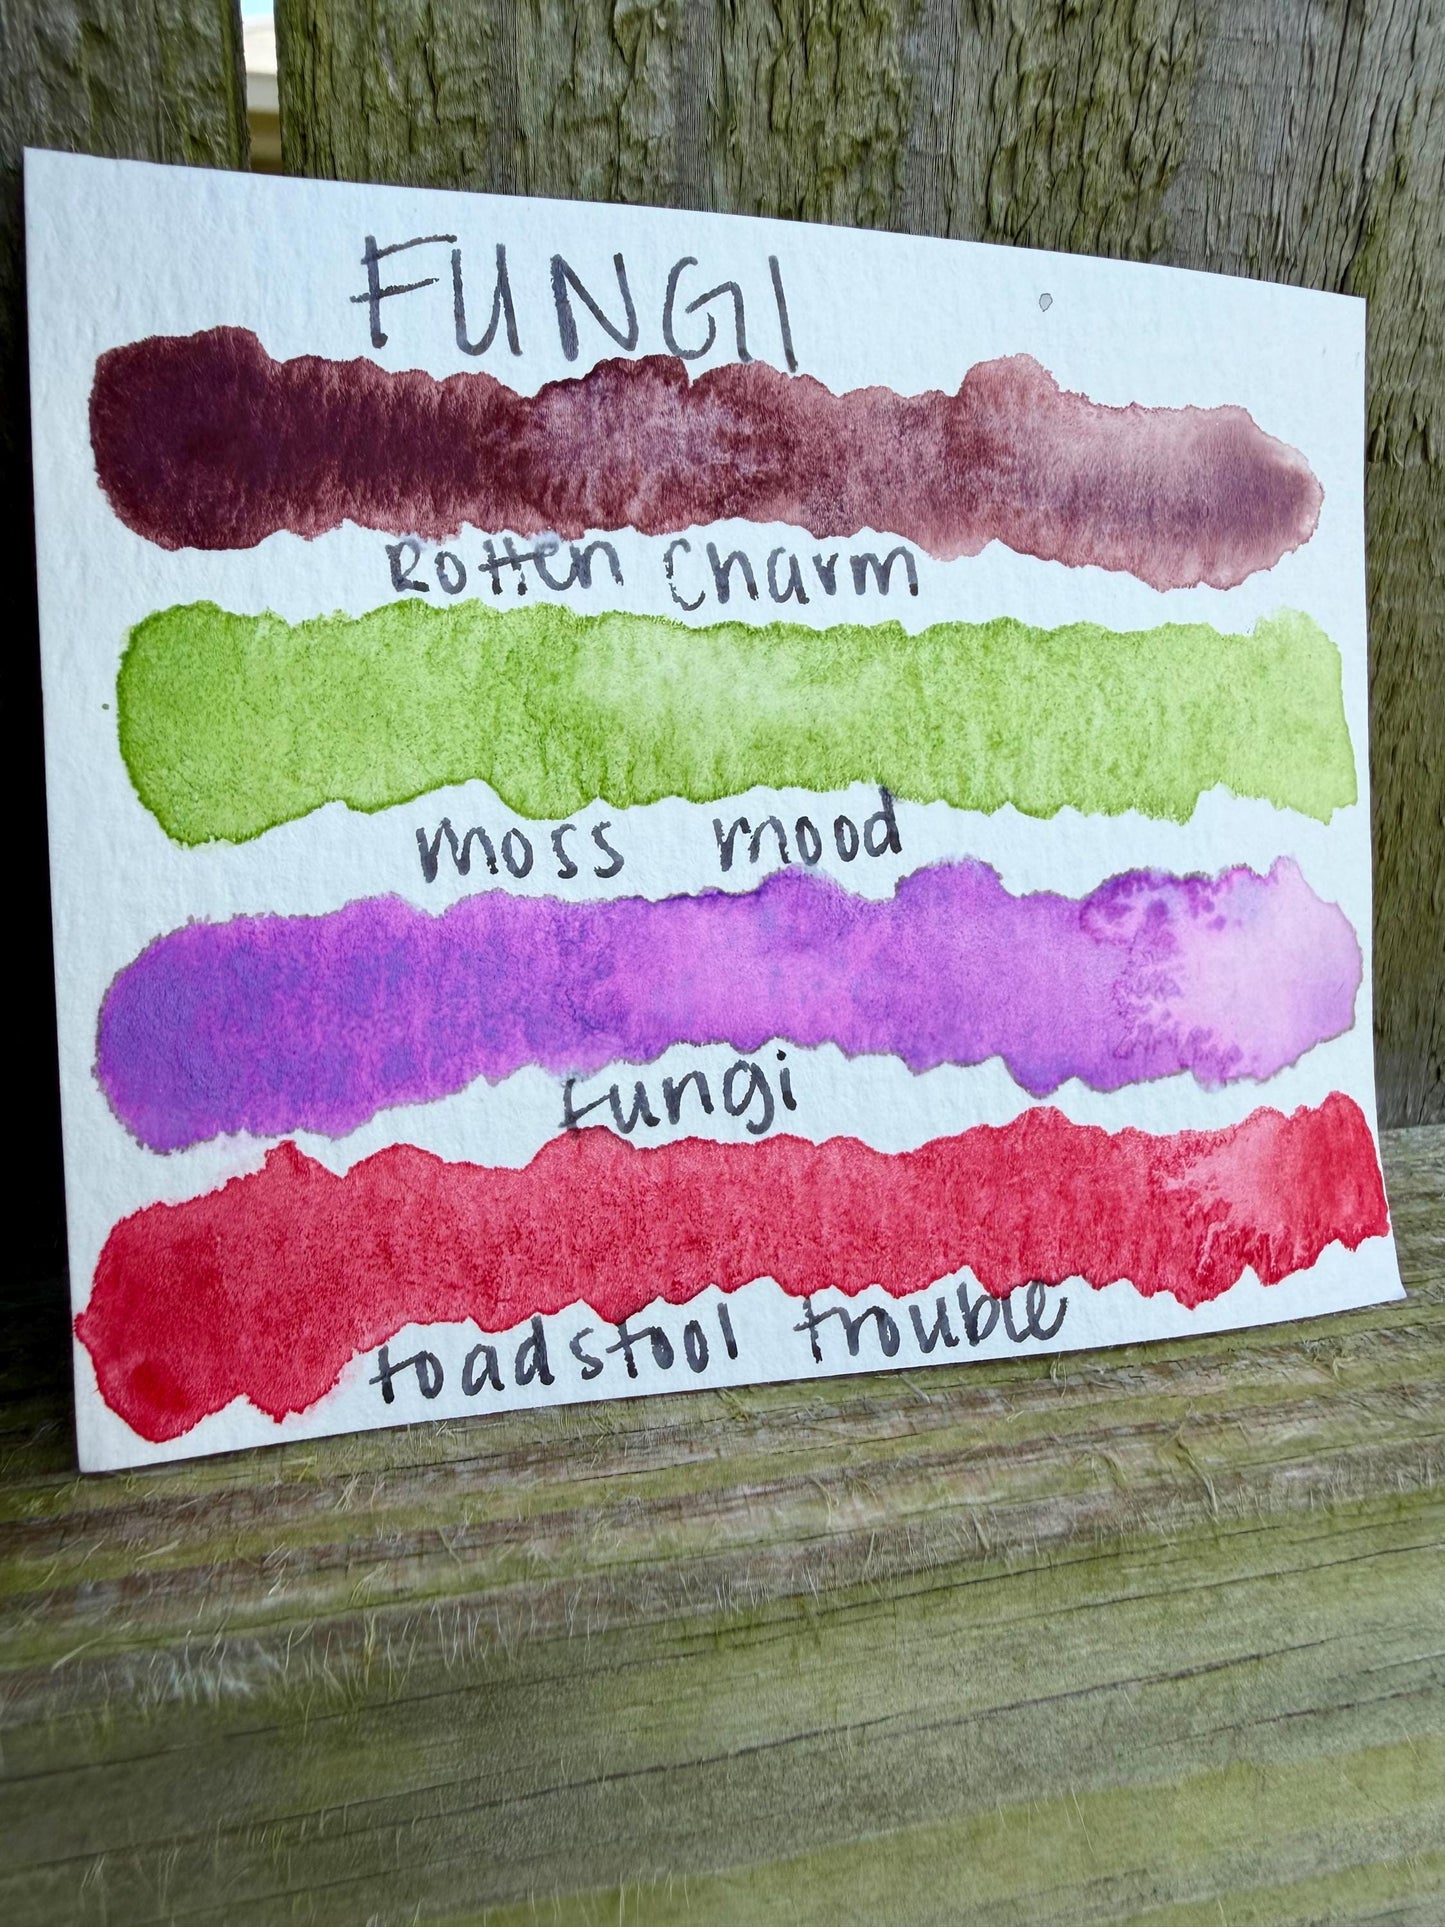 FUNGI
Rotten Charm
moss mood
fungi
toadstool trouble